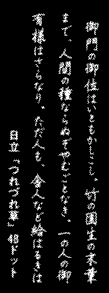 御門の御位はいともかしこし。竹の園生の末葉
まで、人間の種ならぬぞやむごとなき。一の人の御
有様はさらなり。ただ人も、舎人など給はるきは
日立『つれづれ草』48ドット